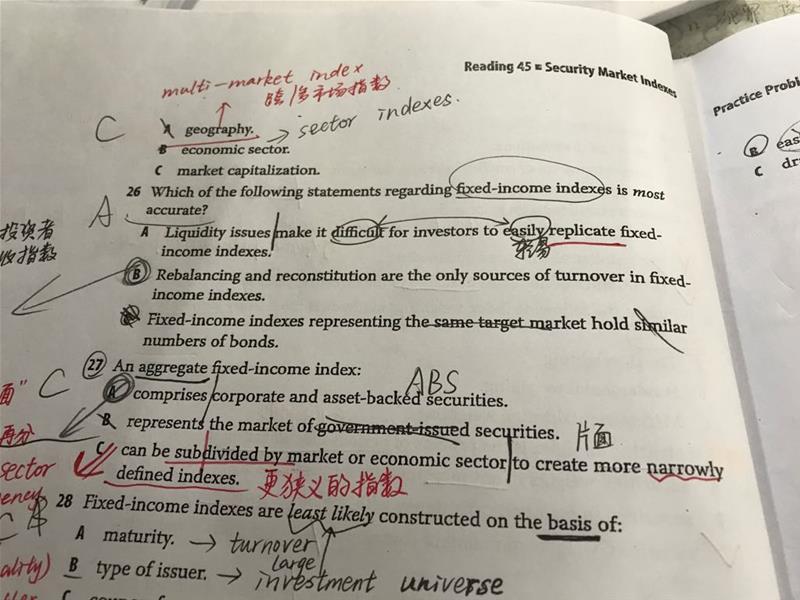 Reading 45 ■ Security Market Indexes
multi-market index
跨/多市场指数
C
A geography.
→ sector indexes.
B economic sector.
C market capitalization.
26 Which of the following statements regarding fixed-income indexes is most
accurate?
A
A Liquidity issues make it difficult for investors to easily replicate fixed-
income indexes.
B Rebalancing and reconstitution are the only sources of turnover in fixed-
income indexes.
Fixed-income indexes representing the same target market hold similar
numbers of bonds.
投资者
收指数
27 An aggregate fixed-income index:
C
ABS
A comprises corporate and asset-backed securities.
B represents the market of government-issued securities.
片面
面”
再分
C can be subdivided by market or economic sector to create more narrowly
defined indexes.
更狭义的指数
sector
28 Fixed-income indexes are least likely constructed on the basis of:
A maturity. → turnover
large
B type of issuer. → investment universe
ality)
C
Practice Probl
B eas
C dr